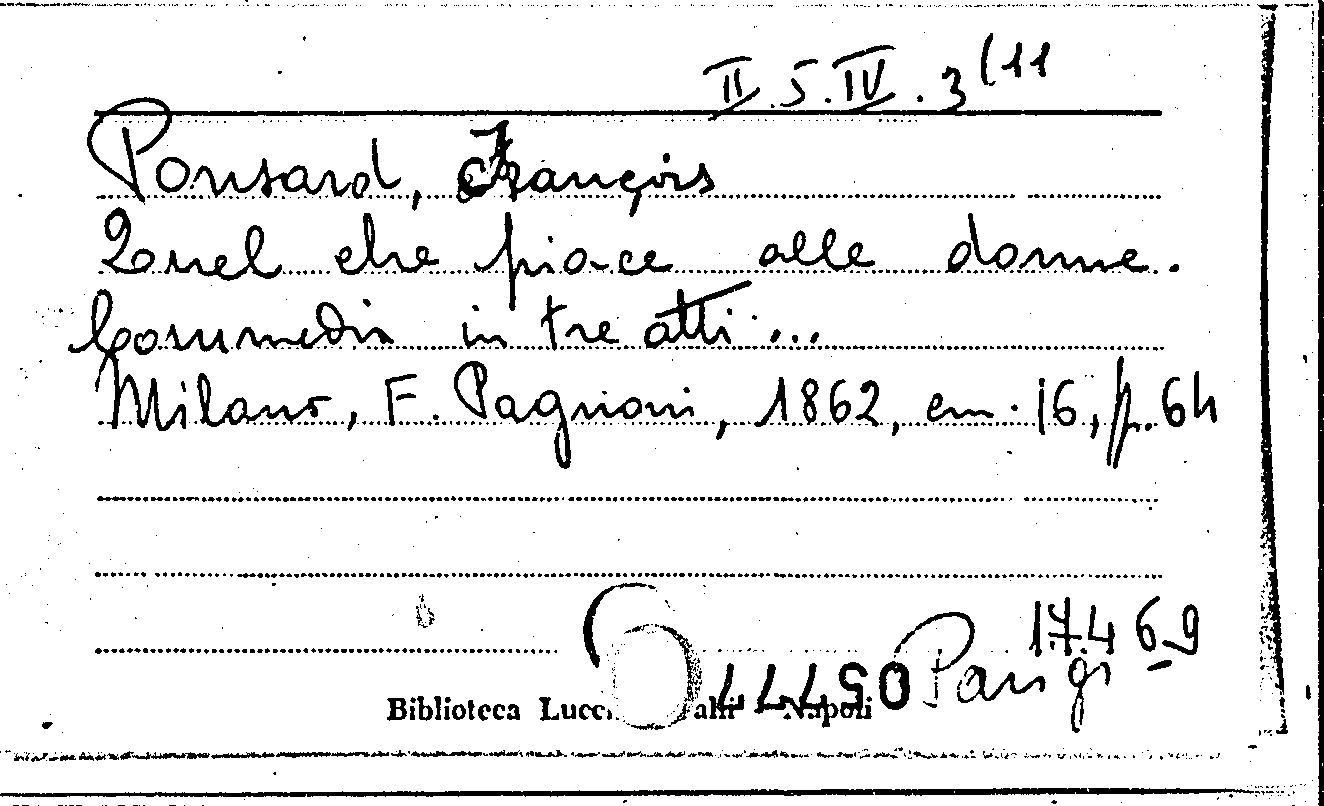 II.5.IV.3(11
Ponsard, François
Quel che piace alle donne.
Commedia in tre atti ...
Milano, F. Pagnoni, 1862, cm. 16, p. 64
174 69
Parigi
057777
Biblioteca Napoli